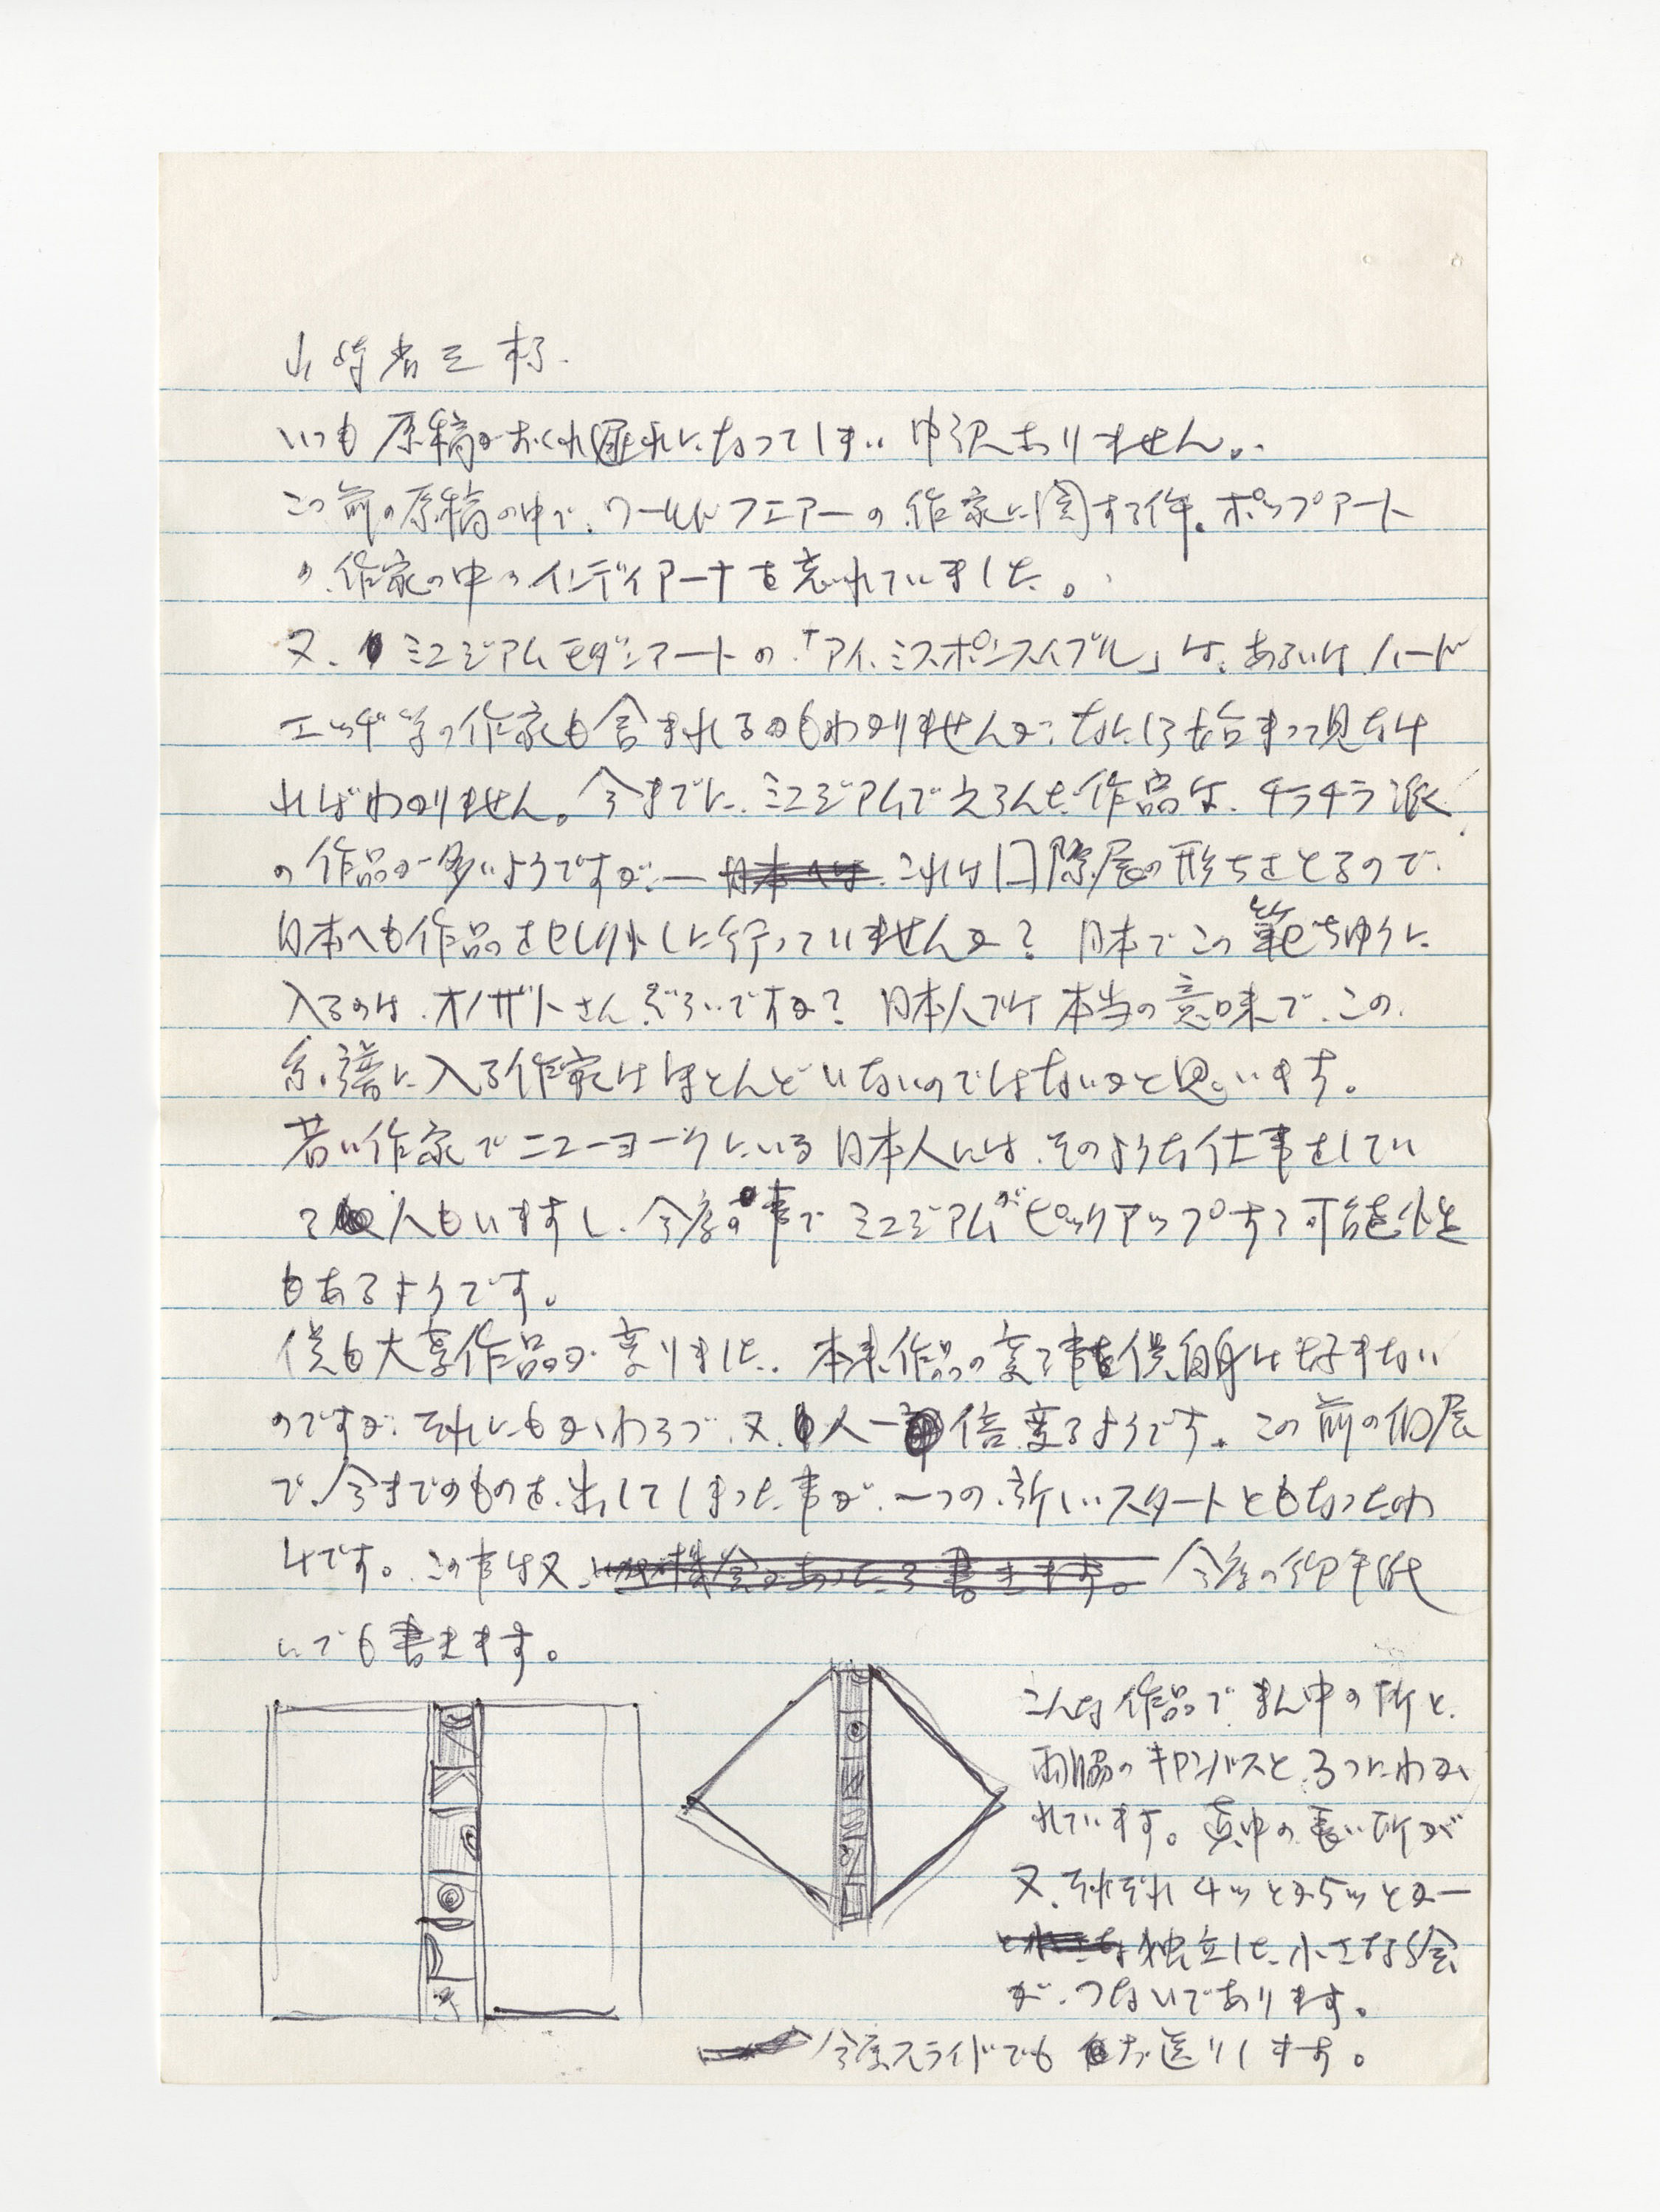 山崎省三様.
いつも原稿がおくれ遅れになってしまい申訳ありません。
この前の原稿の中で、ワールドフェアーの作家に関する件。ポップアート
の作家の中のインディアーナを忘れていました。
又、ミュジアムモダンアートの「アイ、ミスポンスイブル」は、あるいはハード
エッヂ等の作家も含まれるかもわかりませんが、なにしろ始まって見なけ
ればわかりません。今までに、ミュジアムでえらんだ作品は、チラチラ派
の作品が多いようですが、— 日本へは、これは、口際展の形ちをとるので、
日本へも作品をしに行っていませんか? 日本でこの範ちゆうに
入るのは、オノザトさんぐらいですか? 日本人では本当の意味で、この
系譜に入る作家はほとんどいないのではないかと思います。
若い作家でニューヨークにいる日本人には、そのような仕事をしてい
る人もいますし、今度の事でミュジアムがピックアップする可能性
もあるようです。
僕も大変作品が変りました。本来作品の変る事を僕自身は好まない
のですが、それにもかゝわらづ、又、人一倍変るようです。この前の個展
で、今までのものを出してしまった事が、一つの新しいスタートともなったわ
けです。この事は又、機会があったら書きます。今度の
にでも書きます。
こんな作品で、まん中の所と、
両脇のキャンバスと、3つにわか
れています。真中の長い所が
又、それぞれ4ツとか5ツとか—
独立した、小さな絵
が、つないであります。
今度スライドでもお送りします。